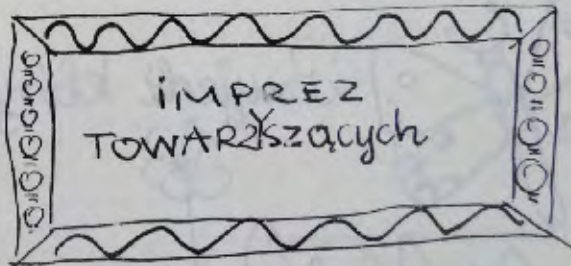 iMPREZ
TOWARZYSZących